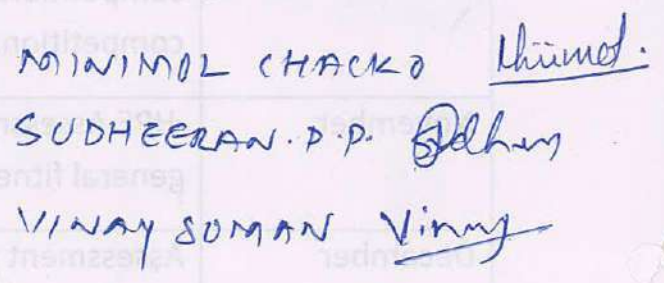 MINIMOL CHACKO Minimol.
SUDHEERAN.P.P.
VINAY SOMAN Vinay